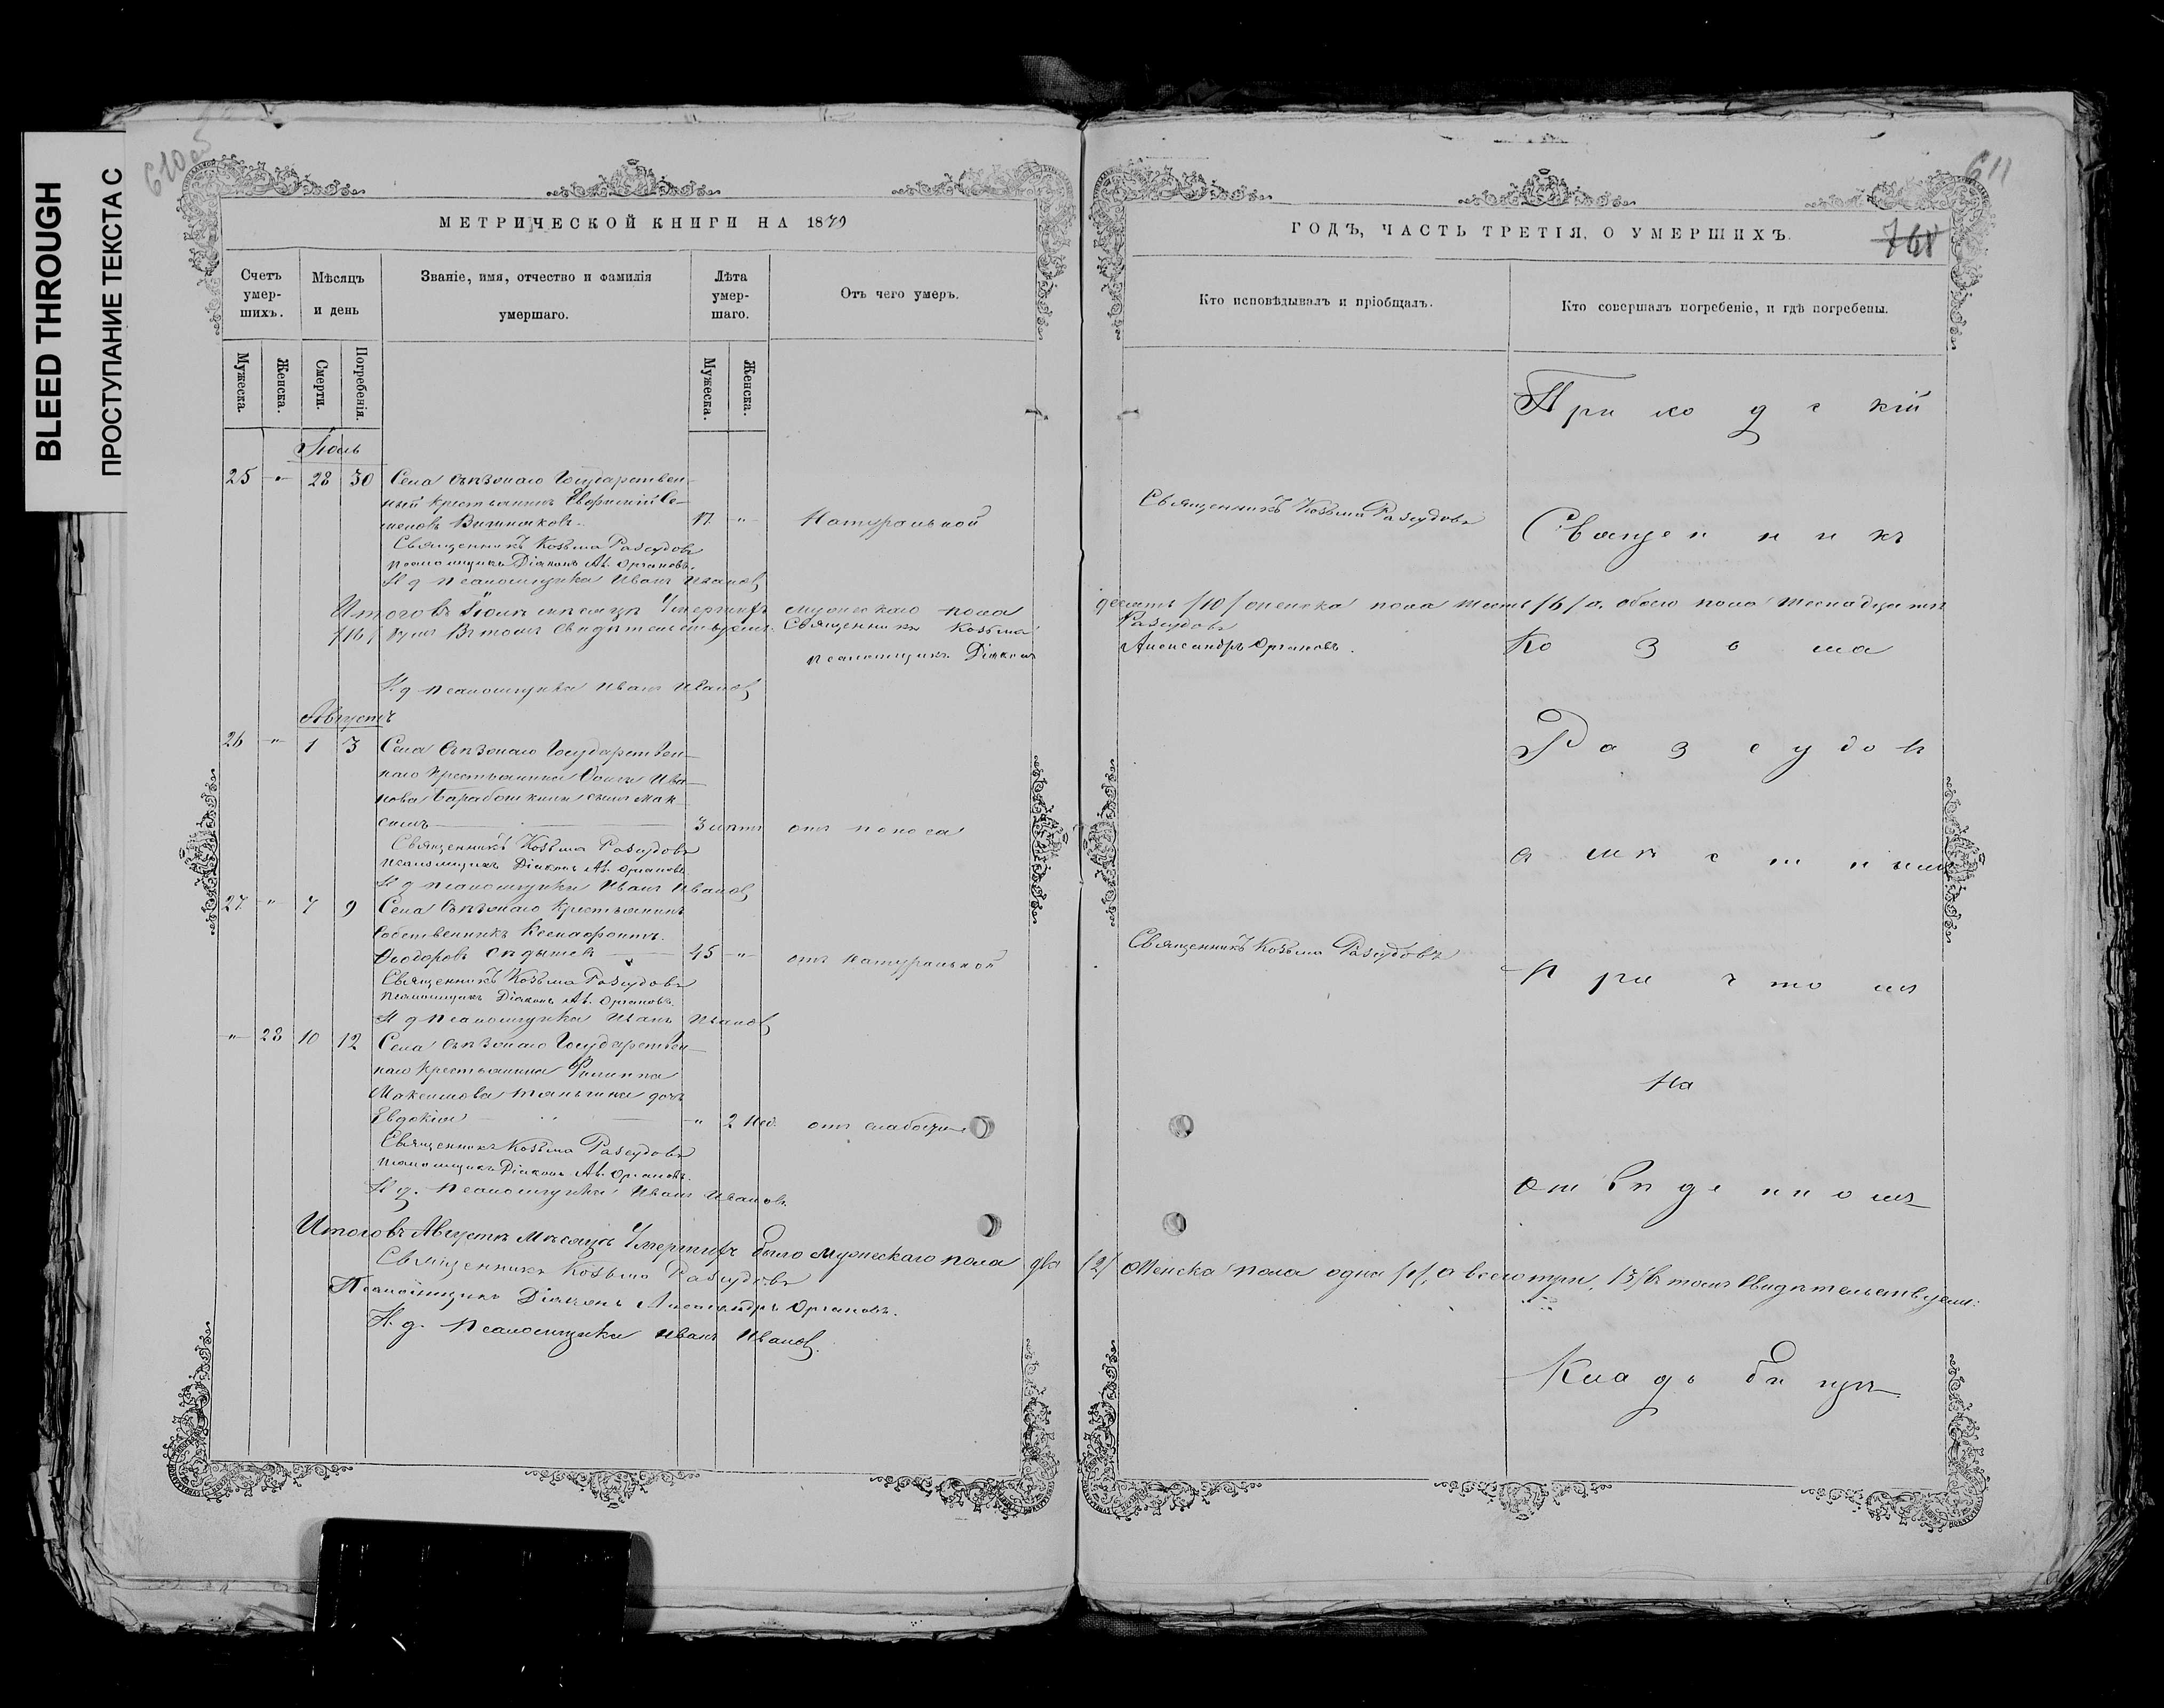 BLEED THROUGH
ПРОСТУПАНИЕ ТЕКСТА С
610 об
МЕТРИЧЕСКОЙ КНИГИ НА 1879
Счетъ умер-шихъ.
Мѣсяцъ и день
Званіе, имя, отчество и фамилія умершаго.
Лѣта умер-шаго.
Отъ чего умеръ.
Мужеска.
Женска.
Смерти.
Погребенія.
Мужеска.
Женска.
Іюль
25 " 28 30 Села Съѣзжаго Государствен-
ный крестьянинъ
Вишняковъ. "
Натуральной
Священникъ Козьма Разсудовъ
псаломщикъ Діаконъ Ал. Органовъ.
И д псаломщика Иванъ Ивановъ
Итого въ Іюлѣ мѣсяцѣ Умершихъ мужескаго пола
/16/ Въ томъ свидѣтельствуемъ: Священникъ Козьма
псаломщикъ Діаконъ
И. д псаломщика Иванъ Ивановъ
Августъ
26 " 1 3 Села Съѣзжаго Государствен-
наго крестьянина Ива-
нова сынъ Мак-
симъ 3 лѣтъ отъ поноса
Священникъ Козьма Разсудовъ
псаломщикъ Діаконъ Ал. Органовъ
И д псаломщика Иванъ Ивановъ
27 " 7 9 Села Съѣзжаго Крестьянинъ
собственникъ Ксенофонтъ
Ѳеодоровъ 45 " отъ натуральной
Священникъ Козьма Разсудовъ
псаломщикъ Діаконъ Ал. Органовъ.
И д псаломщика Иванъ Ивановъ
" 28 10 12 Села Съѣзжаго Государствен-
наго крестьянина Филиппа
Максимова дочь
Евдокія " 2 нед. отъ слабости
Священникъ Козьма Разсудовъ
псаломщикъ Діаконъ Ал. Органовъ.
И д. псаломщика Иванъ Ивановъ.
Итого въ Августѣ Мѣсяцѣ Умершихъ было мужескаго пола два
Священникъ Козьма Разсудовъ
Псаломщикъ Діаконъ Александръ Органовъ.
И. д. псаломщика Иванъ Ивановъ.
611
768
ГОДЪ, ЧАСТЬ ТРЕТІЯ, О УМЕРШИХЪ.
Кто исповѣдывалъ и пріобщалъ.
Кто совершалъ погребеніе, и гдѣ погребены.
Приходскій
Священникъ Козьма Разсудовъ
Священникъ
десять /10/ женска пола шесть /6/ а обоего пола шеснадцать
Разсудовъ
Александръ Органовъ.
Козьма
Разсудовъ
съ мѣстнымъ
Священникъ Козьма Разсудовъ
причтомъ
На
отведенномъ
/2/ Женска пола одна /1/, а всего три, /3/ въ томъ Свидѣтельствуемъ:
Кладбищѣ